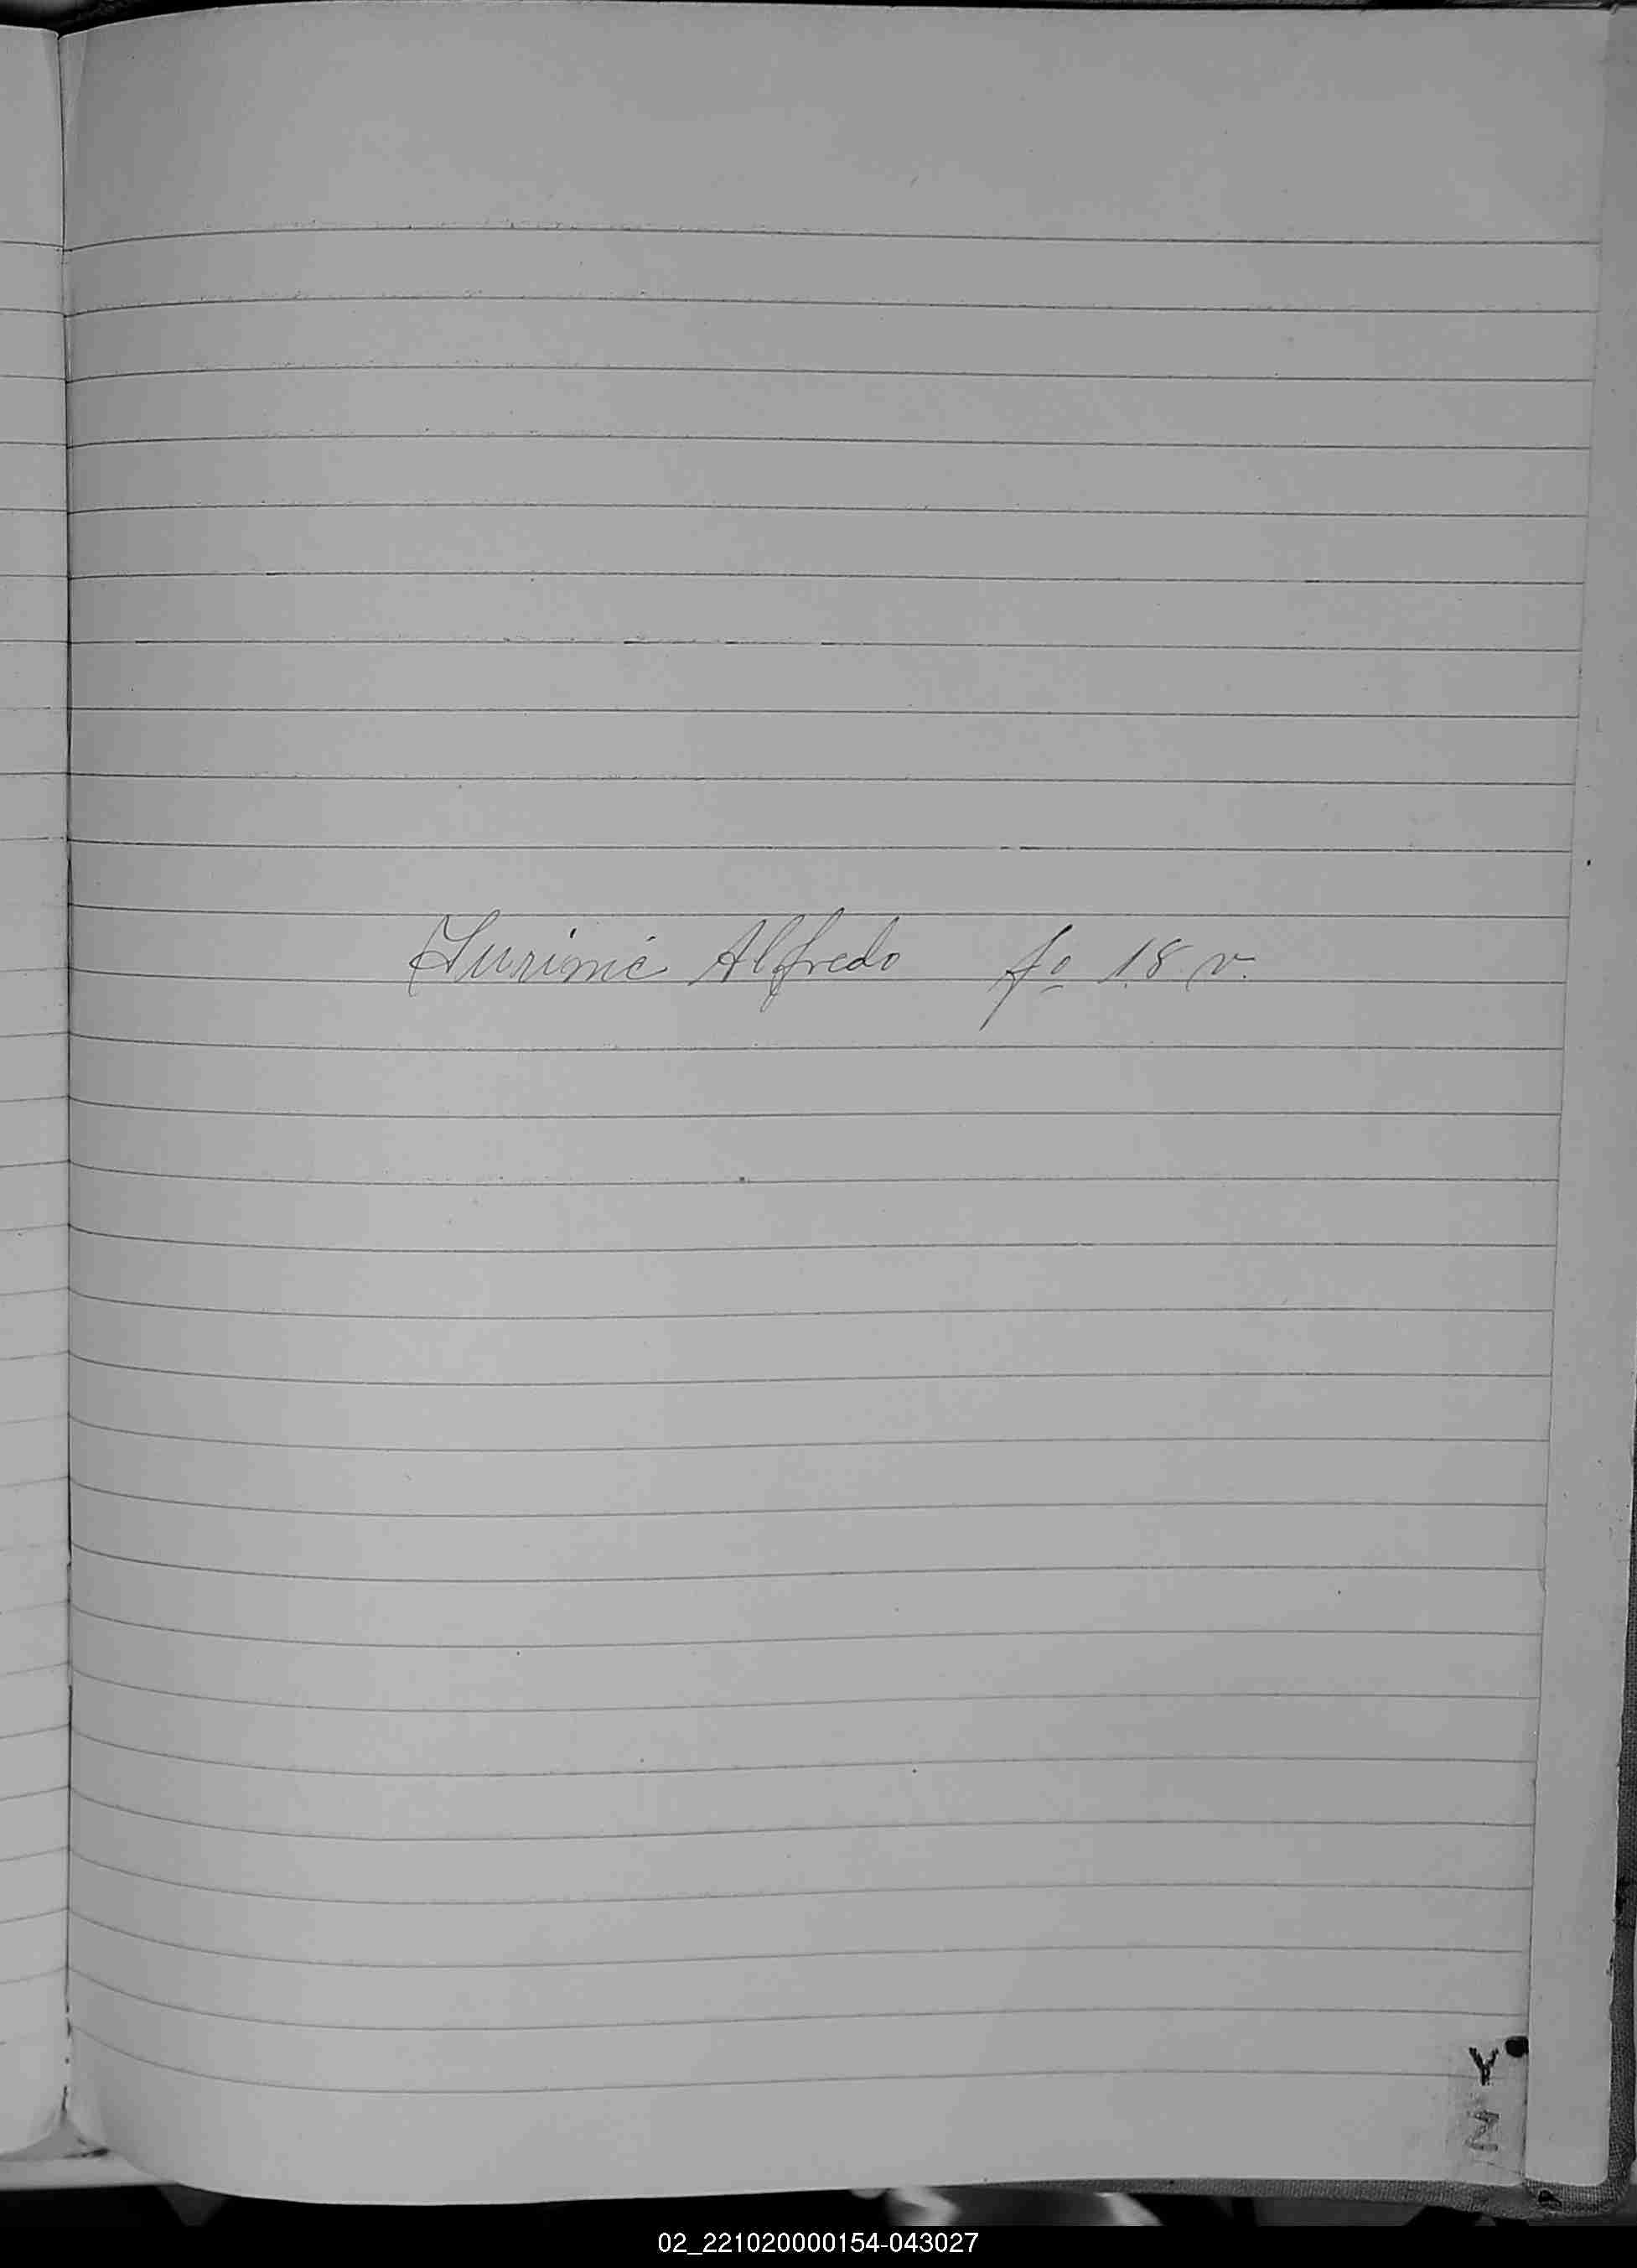 Alfredo fº 18 v.
Y
Z
02_221020000154-043027